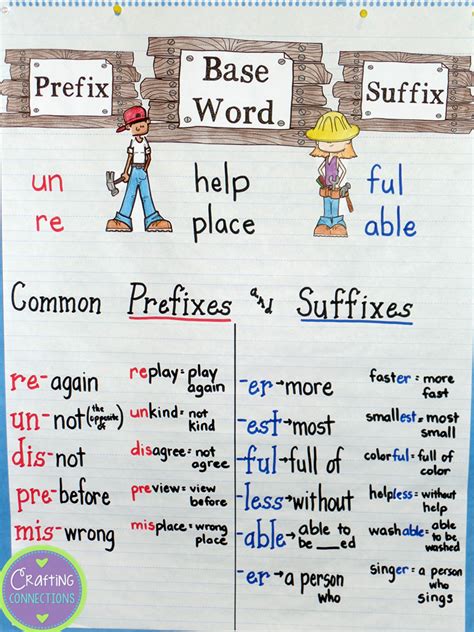 Prefix
Base
Word
Suffix
un help ful
re place able
Common Prefixes and Suffixes
re-again
replay = play
again
un-not (the opposite of)
unkind = not
kind
dis-not
disagree = not
agree
pre-before
preview = view
before
mis-wrong
misplace = wrong
place
-er→more
faster = more
fast
-est→most
smallest = most
small
-ful→full of
colorful = full of
color
-less→without
helpless = without
help
-able→able to
be __ed
washable = able
to be
washed
-er→a person
who
singer = a person
who
sings
Crafting
Connections